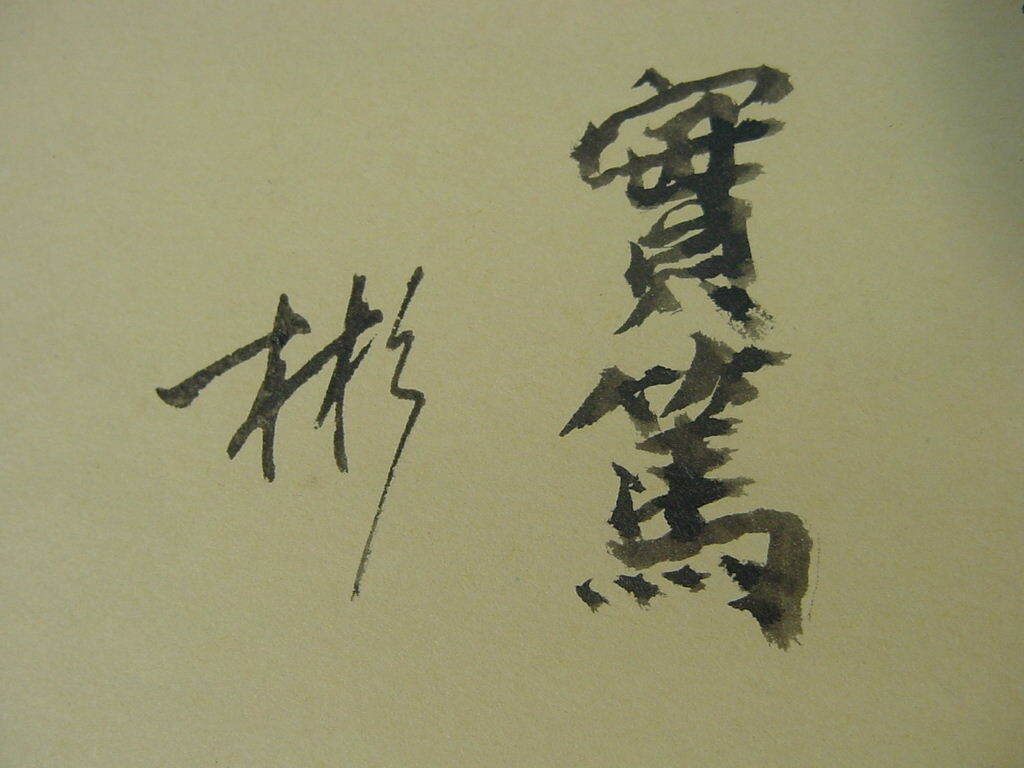 實篤
彬